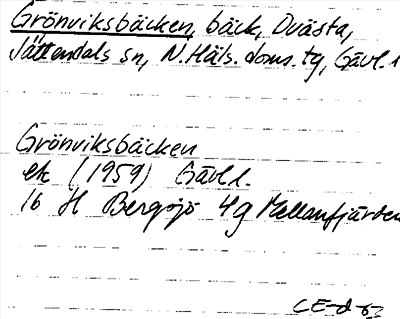 Grönviksbäcken, bäck, Dvästa,
Jättendals sn, N. Häls. doms. tg, Gävl. l
Grönviksbäcken
ek (1959) Gävl l.
16 H Bergsjö 4g Mellanfjärden